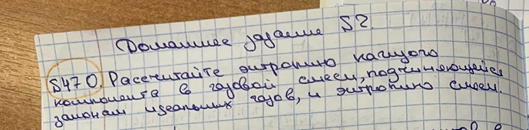 Домашнее задание S2
S470. Рассчитайте энтропию каждого
компонента в газовой смеси, подчиняющейся
законам идеальных газов, и энтропию смеси.